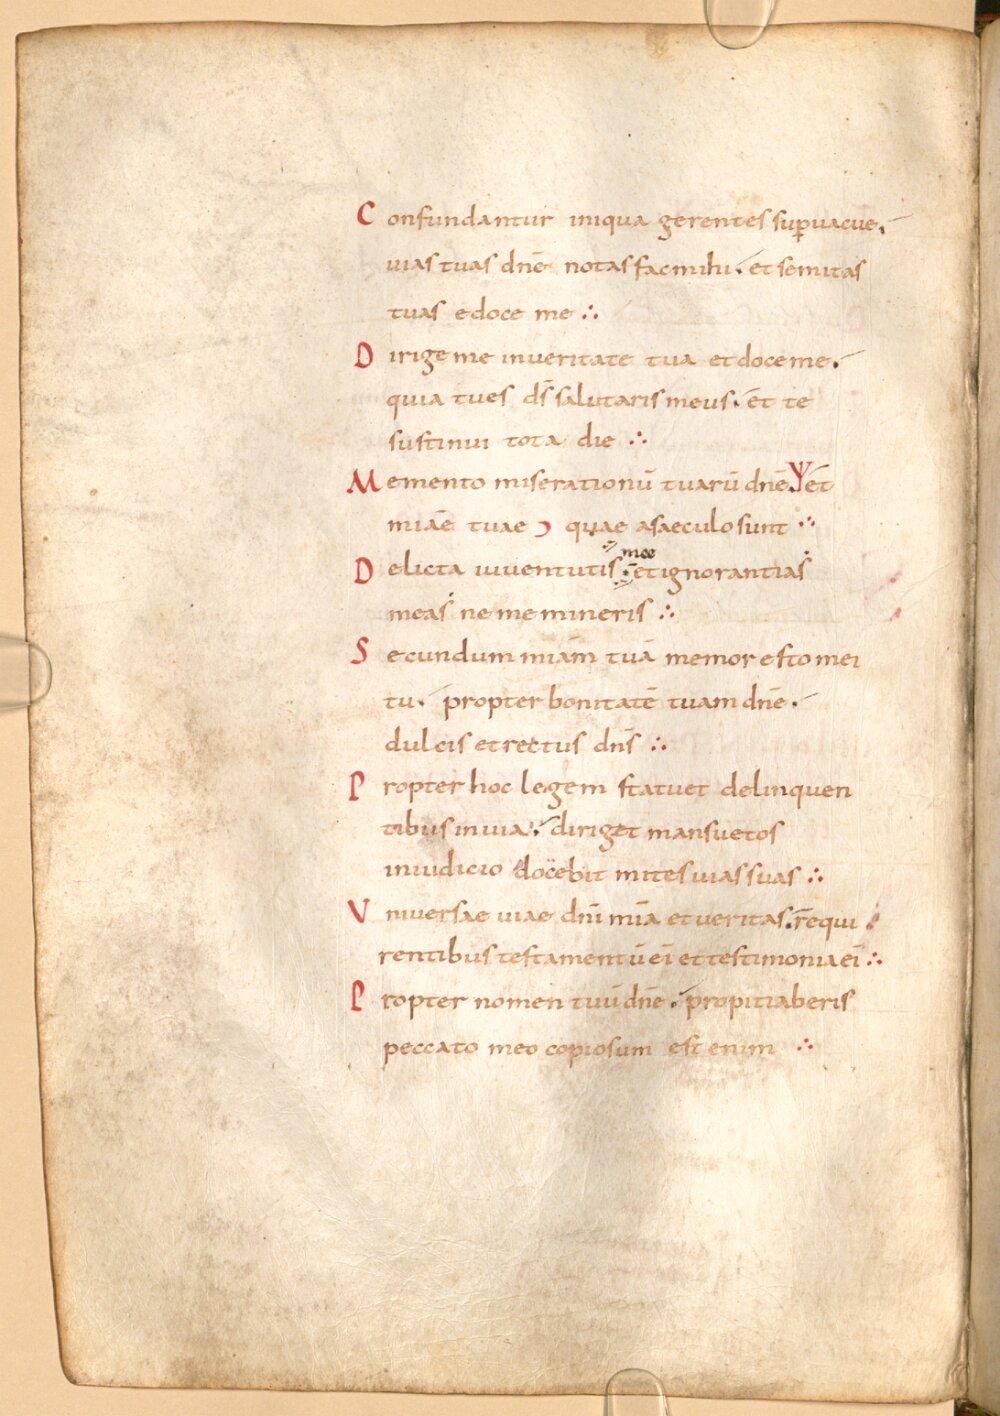 Confundantur iniqua gerentes sup̄uacue.
uias tuas dn̄e notas fac mihi. et semitas
tuas edoce me ∴
Dirige me in ueritate tua et doce me.
quia tu es d̄s salutaris meus. et te
sustinui tota die ∴
Memento miserationū tuarū dn̄e. et
miāe tuae quae a saeculo sunt ∴
mee
Delicta iuuentutis et ignorantias
meas ne memineris ∴
Secundum miām tuā memor esto mei
tu. propter bonitatē tuam dn̄e.
dulcis et rectus dn̄s ∴
Propter hoc legem statuet delinquen
tibus in uia. diriget mansuetos
in iudicio docebit mites uias suas ∴
Uniuersae uiae dn̄i mīa et ueritas. requi
rentibus testamentū eī et testimonia eī ∴
Propter nomen tuū dn̄e. propitiaberis
peccato meo copiosum est enim ∴